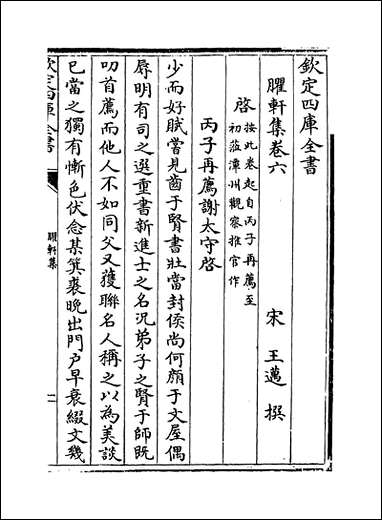 欽定四庫全書
臞軒集卷六
宋 王邁 撰
啓
按此卷起自丙子再薦至
初蒞漳州觀察推官作
丙子再薦謝太守啓
少而好賦嘗見齒于賢書壯當封侯尚何顏于文屋偶
辱明有司之選重書新進士之名況弟子之賢于師既
叨首薦而他人不如同父又獲聯名人稱之以為美談
已當之獨有慚色伏念某箕裘晚出門戶早衰綴文幾
欽定四庫全書
臞軒集
一